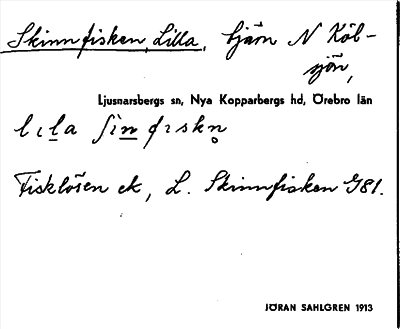 Skinnfisken, Lilla, tjärn N Köl-
sjön,
Ljusnarsbergs sn, Nya Kopparbergs hd, Örebro län
Fisklösen ek, L. Skinnfisken G81.
JÖRAN SAHLGREN 1913